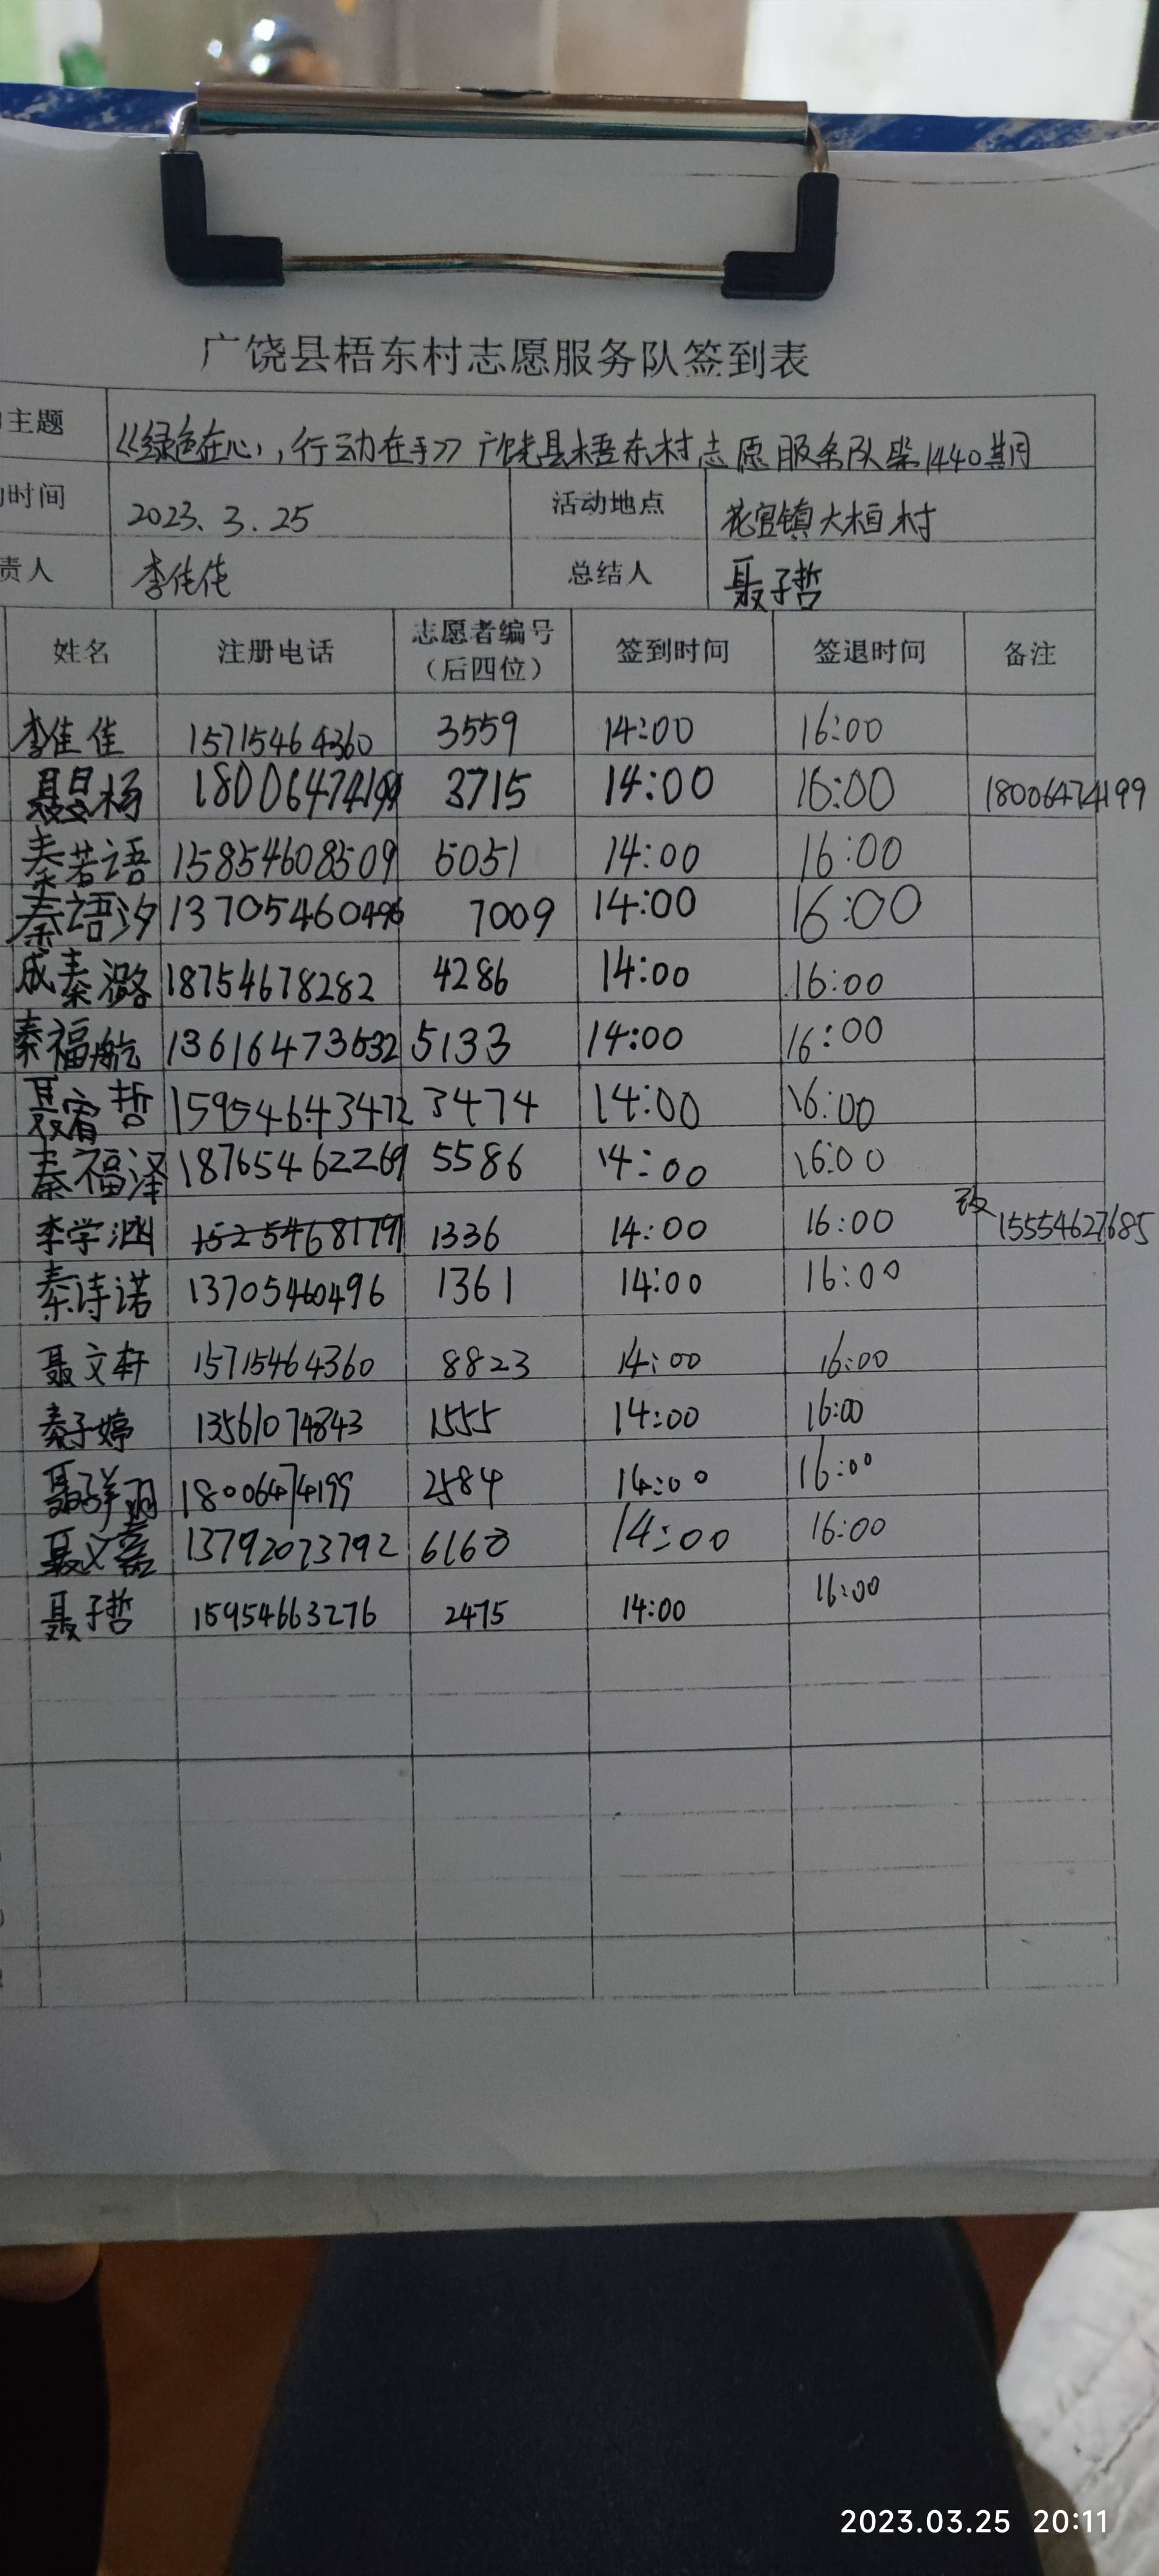 广饶县梧东村志愿服务队签到表
主题 《绿色在心,行动在手》广饶县梧东村志愿服务队第1440期
时间 2023.3.25 活动地点 花官镇大桓村
责人 李佳佳 总结人 聂子哲
姓名 注册电话 志愿者编号(后四位) 签到时间 签退时间 备注
李佳佳 15715464360 3559 14:00 16:00
聂昊杨 18006474199 3715 14:00 16:00 18006474199
秦若语 15854608509 5051 14:00 16:00
秦语汐 13705460496 7009 14:00 16:00
成秦潞 18754678282 4286 14:00 16:00
秦福航 13616473632 5133 14:00 16:00
聂宥哲 15954643472 3474 14:00 16:00
秦福泽 18765462269 5586 14:00 16:00
李学涵 15254681791 1336 14:00 16:00 改 15554627685
秦诗诺 13705460496 1361 14:00 16:00
聂文轩 15715464360 8823 14:00 16:00
秦子婷 13561074843 1555 14:00 16:00
聂 18006474199 2584 14:00 16:00
聂义嘉 13792073792 6160 14:00 16:00
聂子哲 15954663276 2475 14:00 16:00
2023.03.25 20:11